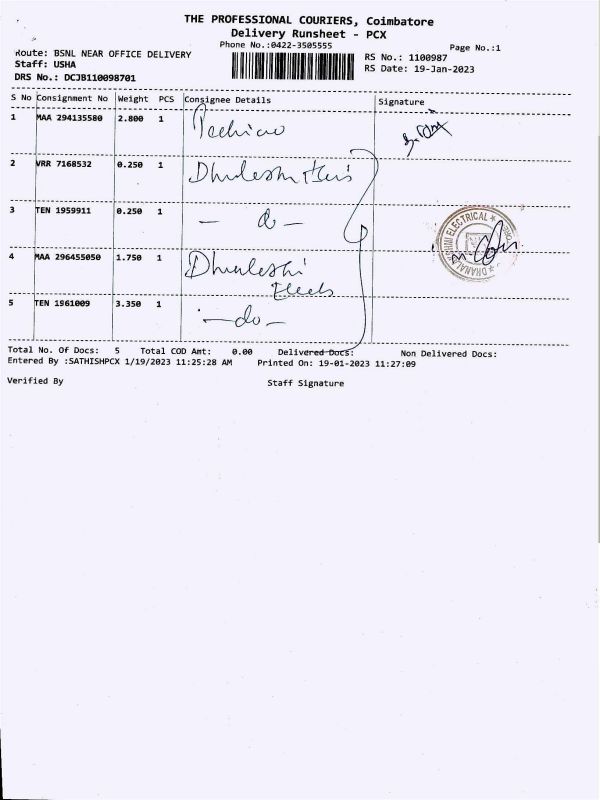 THE PROFESSIONAL COURIERS, Coimbatore
Delivery Runsheet - PCX
Phone No.:0422-3505555
Page No.:1
Route: BSNL NEAR OFFICE DELIVERY
Staff: USHA
DRS No.: DCJB110098701
RS No.: 1100987
RS Date: 19-Jan-2023
S No Consignment No Weight PCS Consignee Details Signature
1 MAA 294135580 2.800 1
2 VRR 7168532 0.250 1
3 TEN 1959911 0.250 1 - do -
4 MAA 296455050 1.750 1
5 TEN 1961009 3.350 1 - do -
ELECTRICAL
Total No. Of Docs: 5 Total COD Amt: 0.00 Delivered Docs: Non Delivered Docs:
Entered By :SATHISHPCX 1/19/2023 11:25:28 AM Printed On: 19-01-2023 11:27:09
Verified By Staff Signature